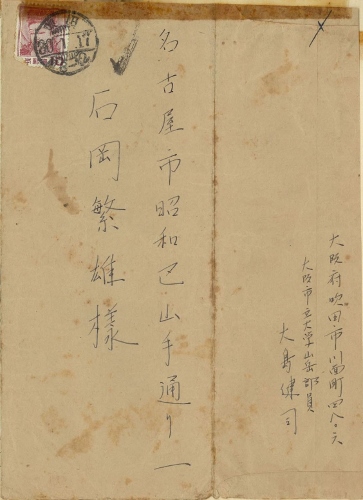 名古屋市昭和区山手通り一
石岡繁雄様
大阪府吹田市川面町四八六
大阪市立大学山岳部員
大島健司
30.1.17